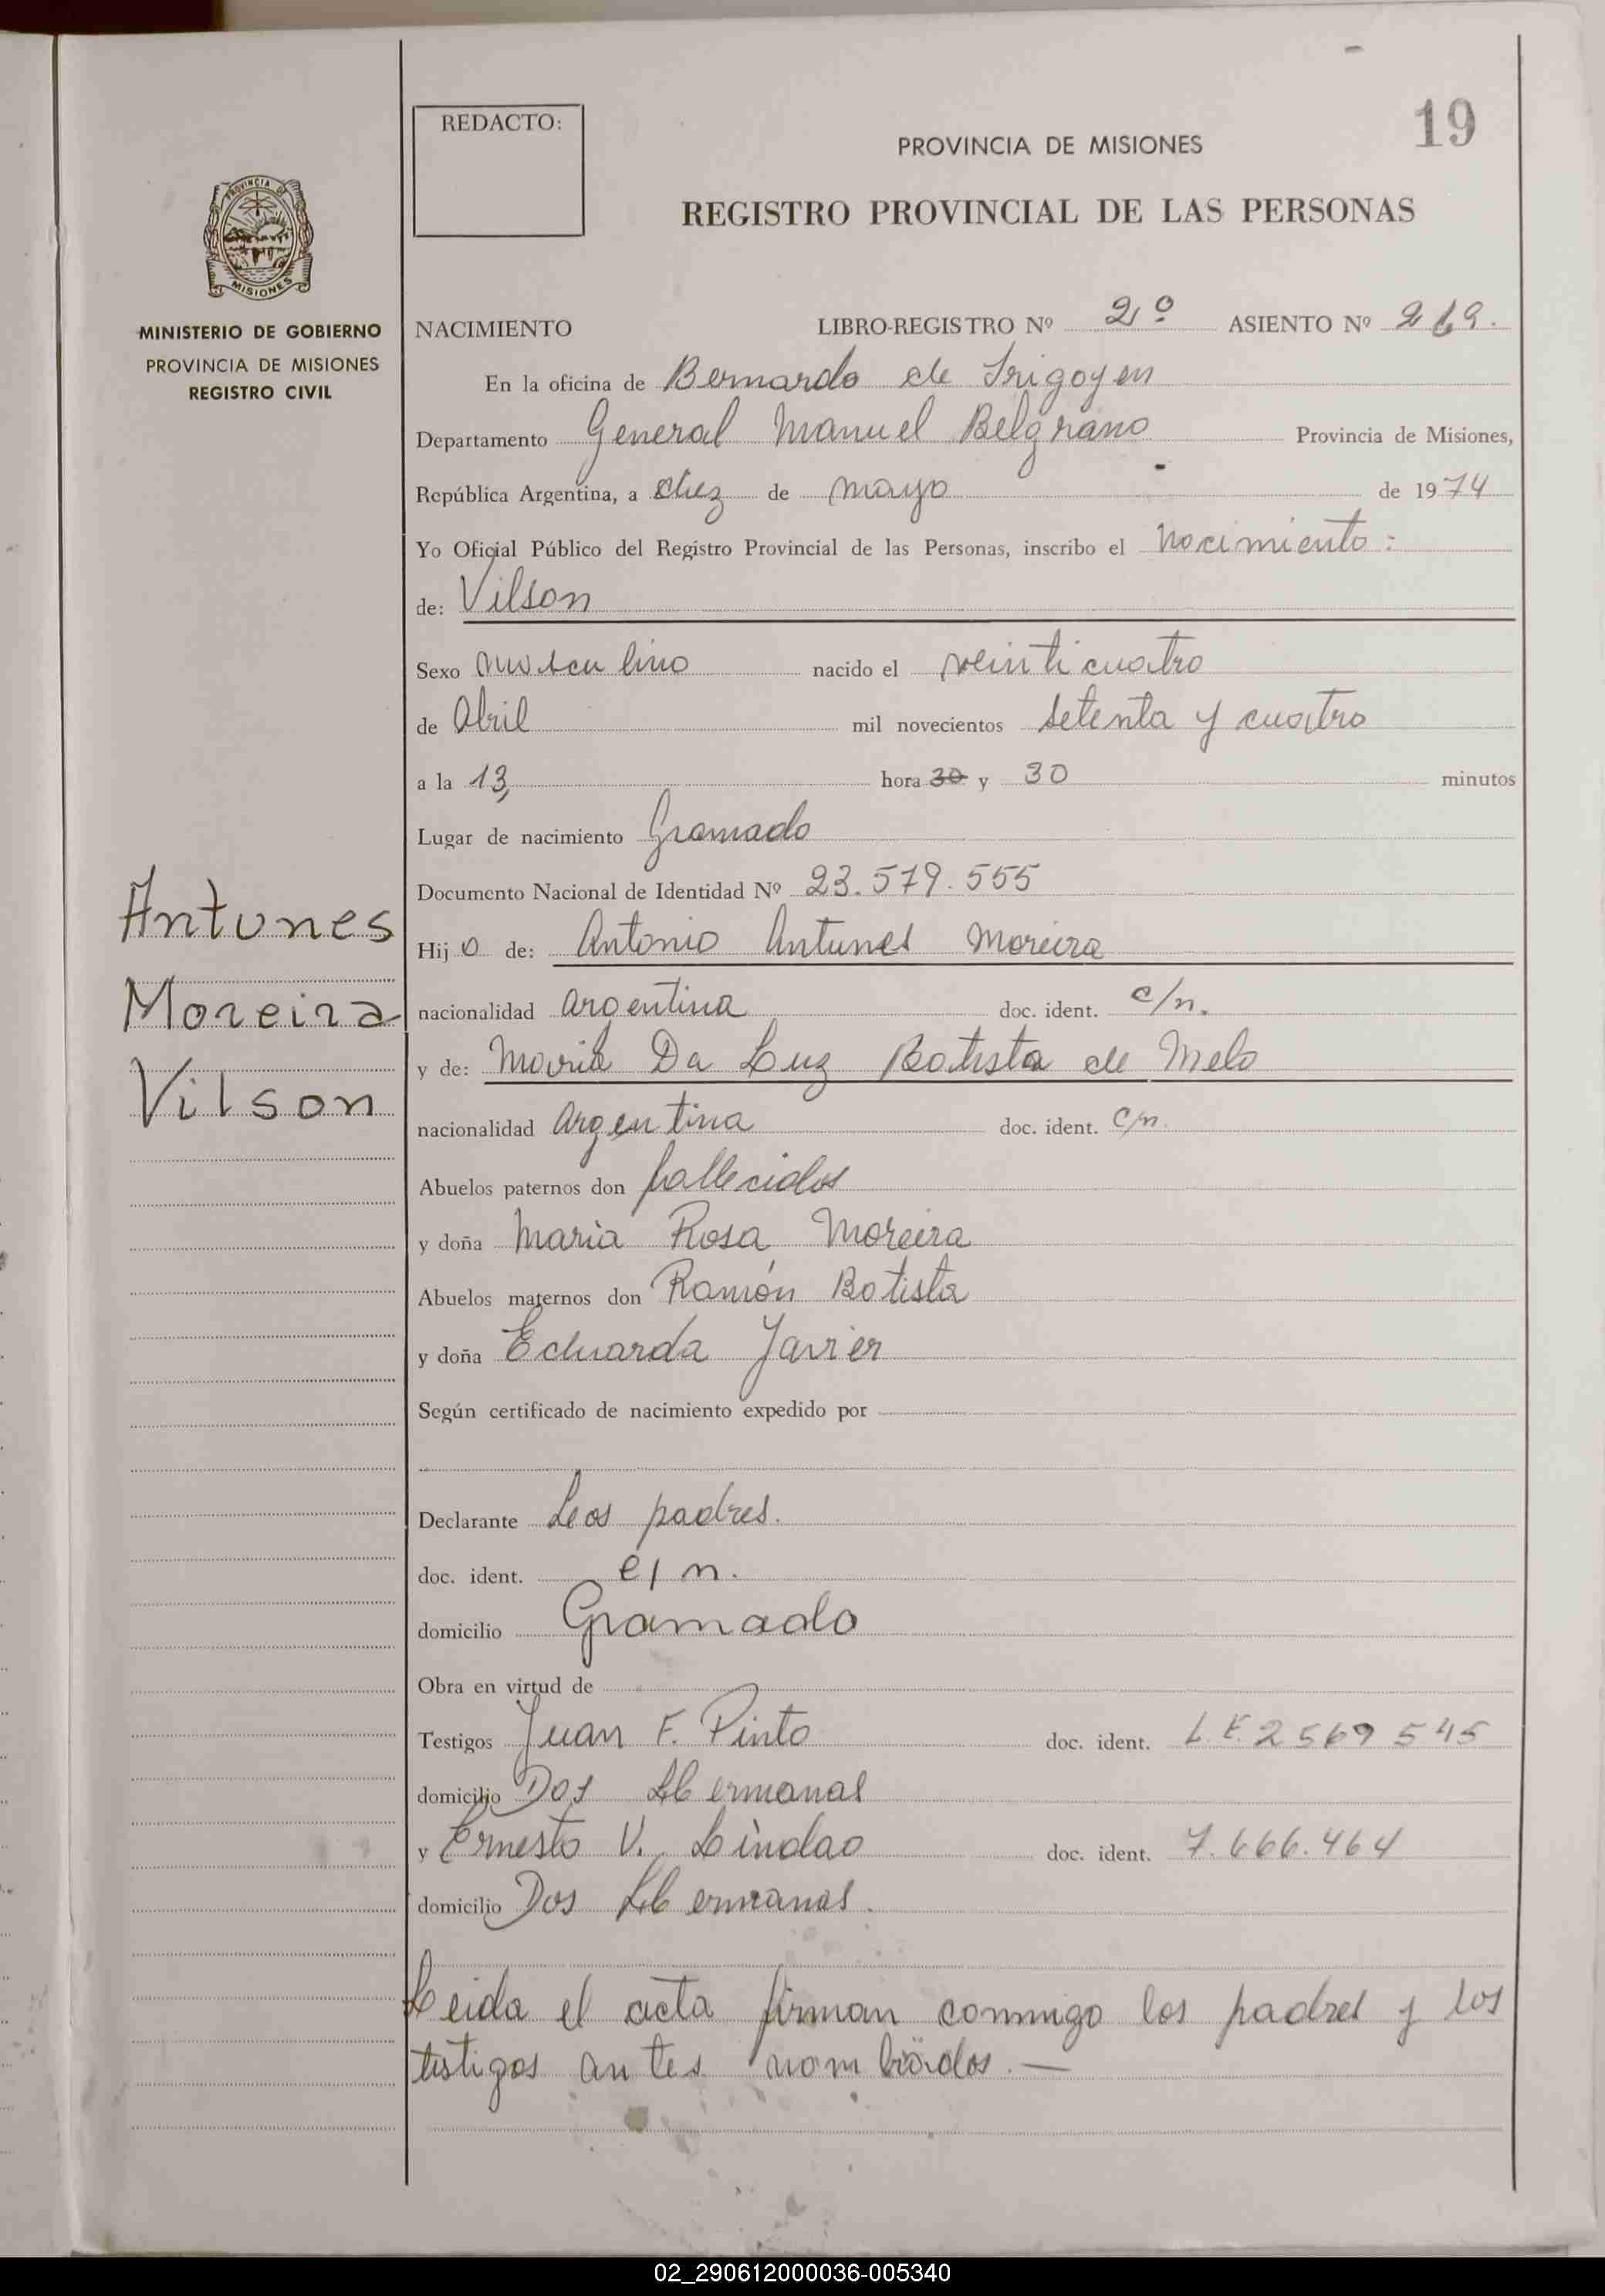 19
REDACTO:
PROVINCIA DE MISIONES
REGISTRO PROVINCIAL DE LAS PERSONAS
PROVINCIA DE
MISIONES
MINISTERIO DE GOBIERNO
PROVINCIA DE MISIONES
REGISTRO CIVIL
NACIMIENTO LIBRO-REGISTRO Nº 2º ASIENTO Nº 219.
En la oficina de Bernardo de Irigoyen
Departamento General Manuel Belgrano Provincia de Misiones,
República Argentina, a diez de mayo de 1974
Yo Oficial Público del Registro Provincial de las Personas, inscribo el nacimiento:
de: Vilson
Sexo masculino nacido el veinticuatro
de Abril mil novecientos setenta y cuatro
a la 13, hora 30 y 30 minutos
Lugar de nacimiento Gramado
Documento Nacional de Identidad Nº 23.579.555
Hijo de: Antonio Antunes Moreira
nacionalidad argentina doc. ident. c/n.
y de: Da Luz Batista de Melo
nacionalidad argentina doc. ident. c/n.
Abuelos paternos don fallecidos
y doña Maria Rosa Moreira
Abuelos maternos don Ramón Batista
y doña Eduarda Javier
Según certificado de nacimiento expedido por
Declarante Los padres.
doc. ident. c/n.
domicilio Gramado
Obra en virtud de
Testigos Juan F. Pinto doc. ident. L.E. 2569545
domicilio Dos Hermanas
y Ernesto V. Lindao doc. ident. 7.666.464
domicilio Dos Hermanas.
Leida el acta firman conmigo los padres y los
testigos antes nombrados.—
Antunes
Moreira
Vilson
02_290612000036-005340